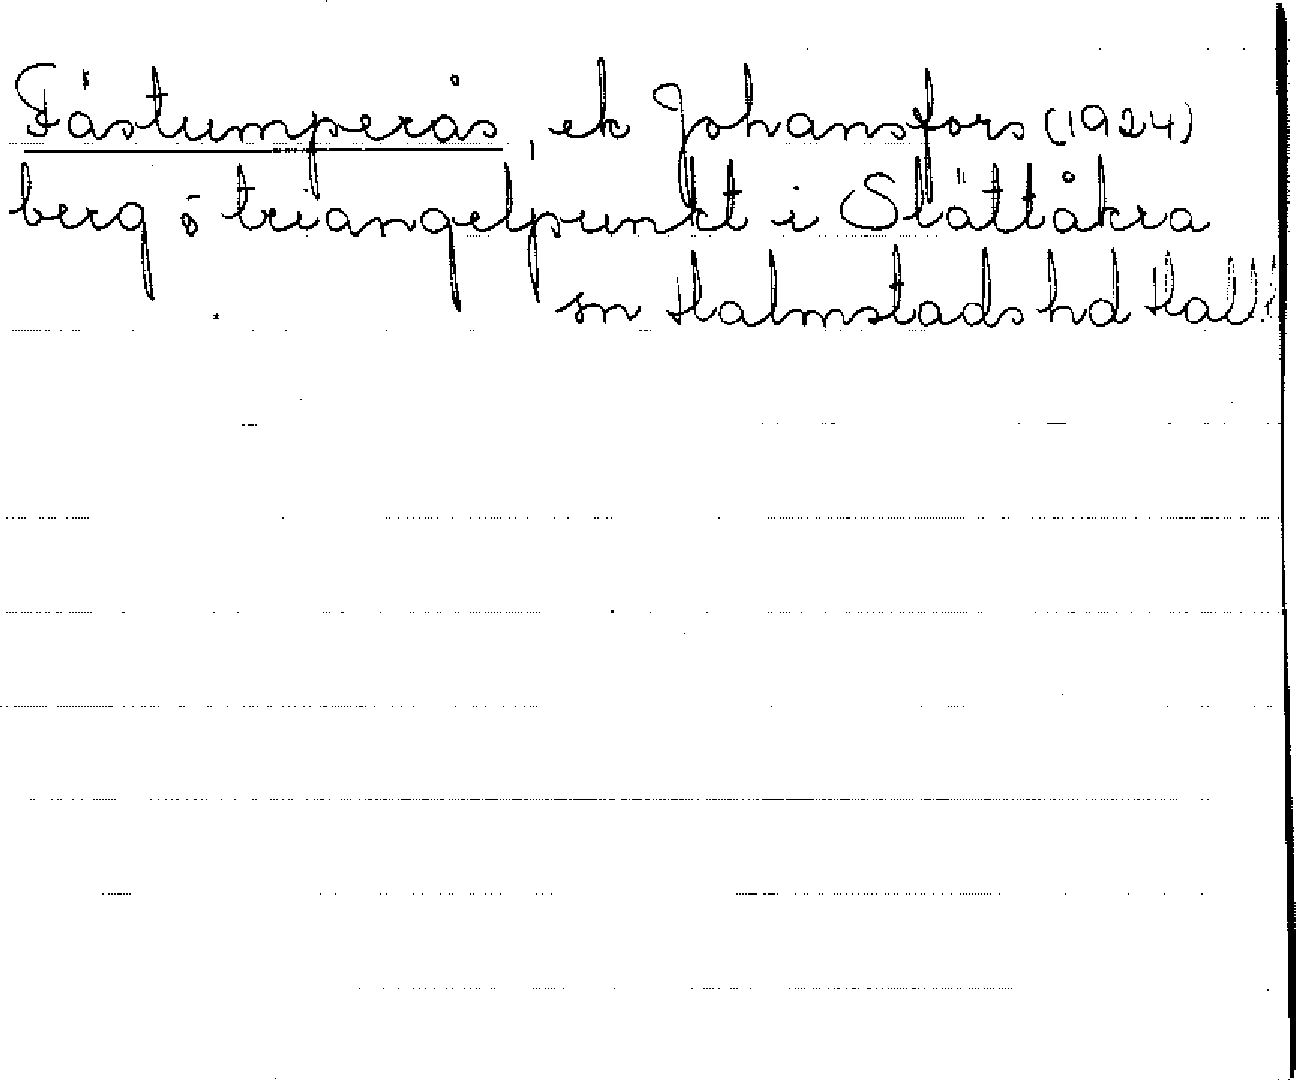 Fåstumperås, ek Johansfors (1924)
berg o triangelpunkt i Slättåkra
sn Halmstads hd Hall